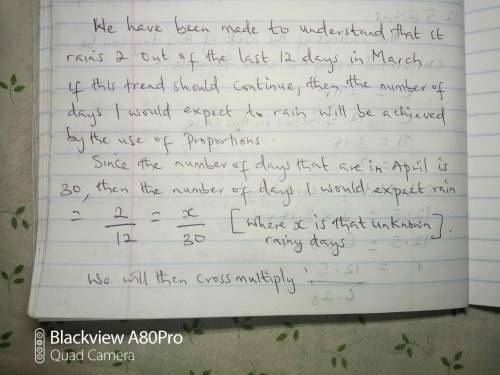 We have been made to understand that it
rains 2 out of the last 12 days in March.
if this trend should continue, then the number of
days I would expect to rain will be achieved
by the use of Proportions.
Since the number of days that are in April is
30, then the number of days I would expect rain
= 2/12 = x/30 [where x is that unknown rainy days].
We will then cross multiply:
Blackview A80Pro
Quad Camera